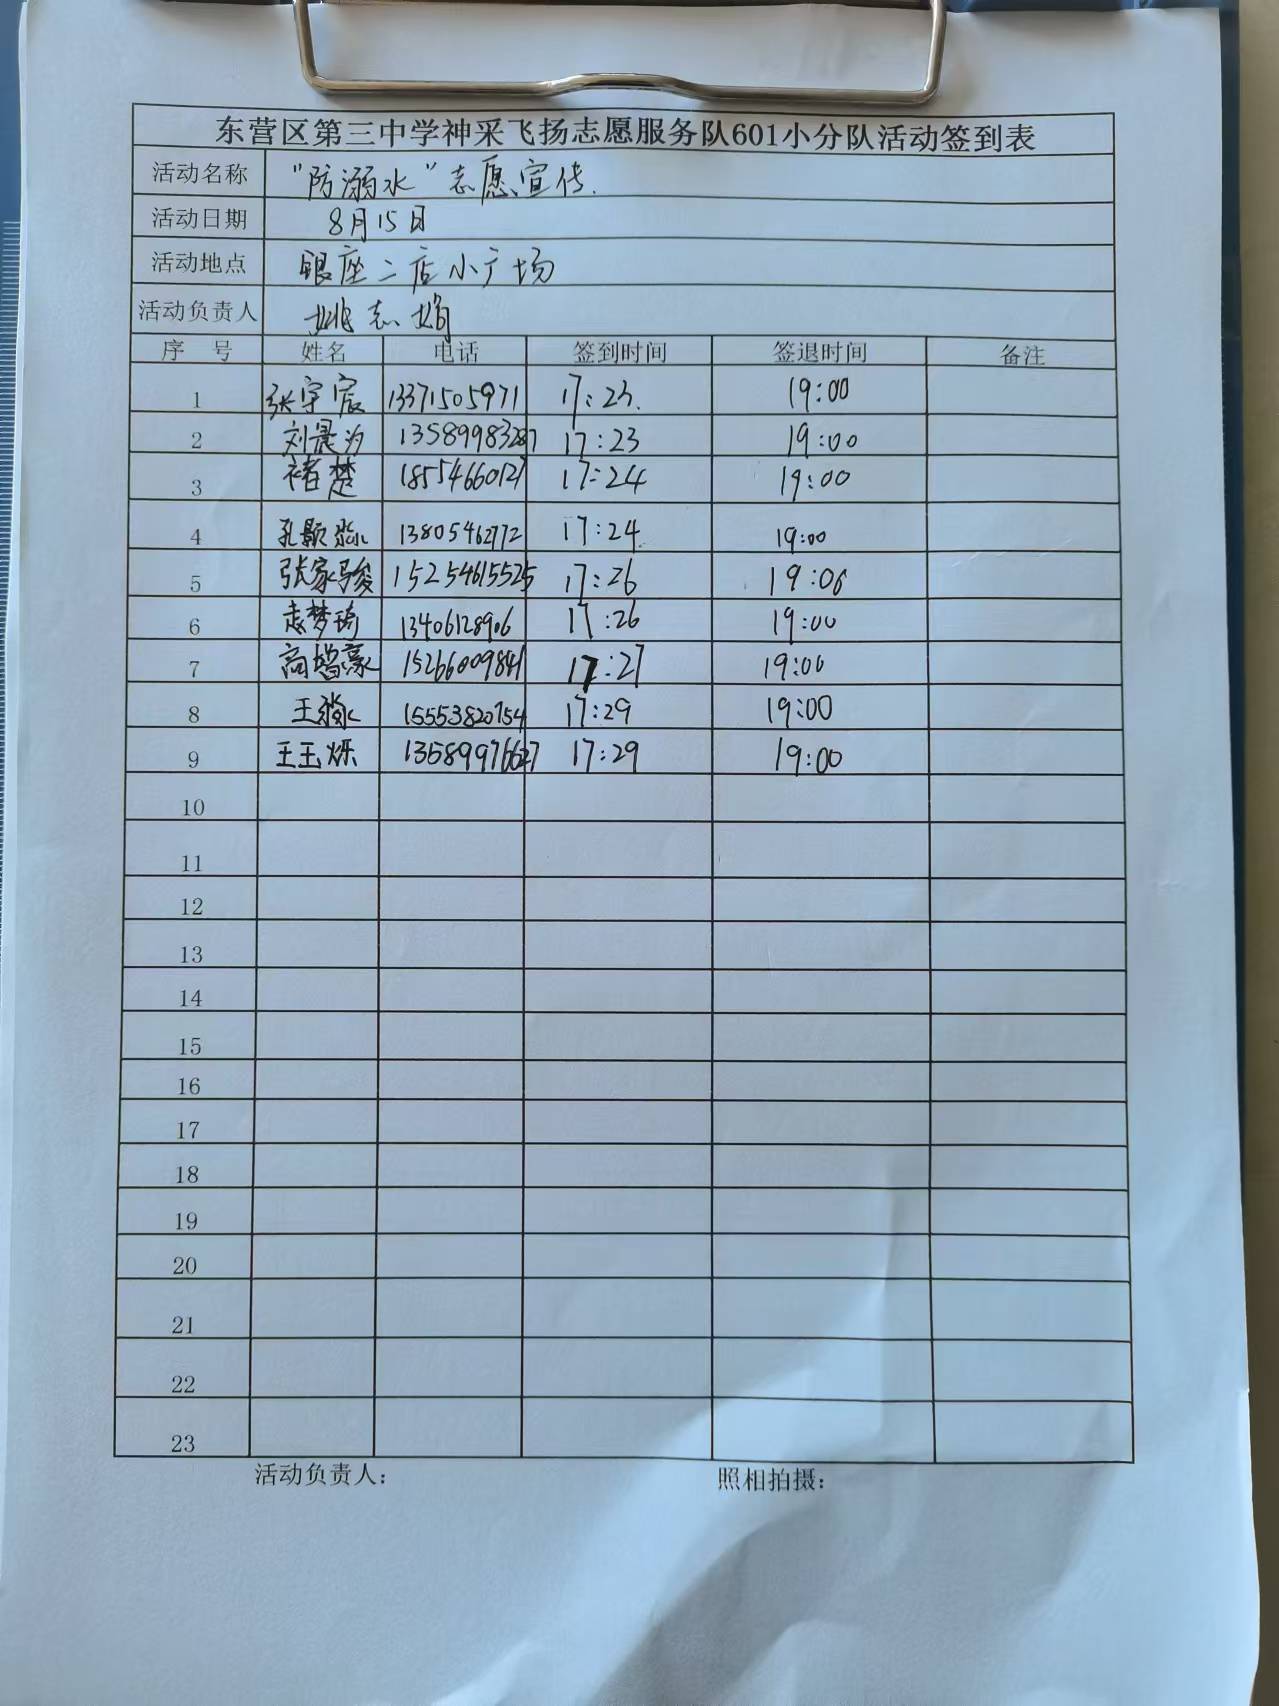 东营区第三中学神采飞扬志愿服务队601小分队活动签到表
活动名称 "防溺水"志愿宣传.
活动日期 8月15日
活动地点 银座二店小广场
活动负责人 姚志娟
序 号 姓名 电话 签到时间 签退时间 备注
1 张宇宸 13371505971 17:23. 19:00
2 刘晟为 13589983287 17:23 19:00
3 褚楚 18554660127 17:24 19:00
4 孔颢淼 13805462772 17:24 19:00
5 张家骏 15254615525 17:26 19:00
6 孟梦琦 13406128906 17:26 19:00
7 高嘉豪 15266009841 17:27 19:00
8 王淼 15553820754 17:29 19:00
9 王玉烁 13589976627 17:29 19:00
10
11
12
13
14
15
16
17
18
19
20
21
22
23
活动负责人: 照相拍摄: